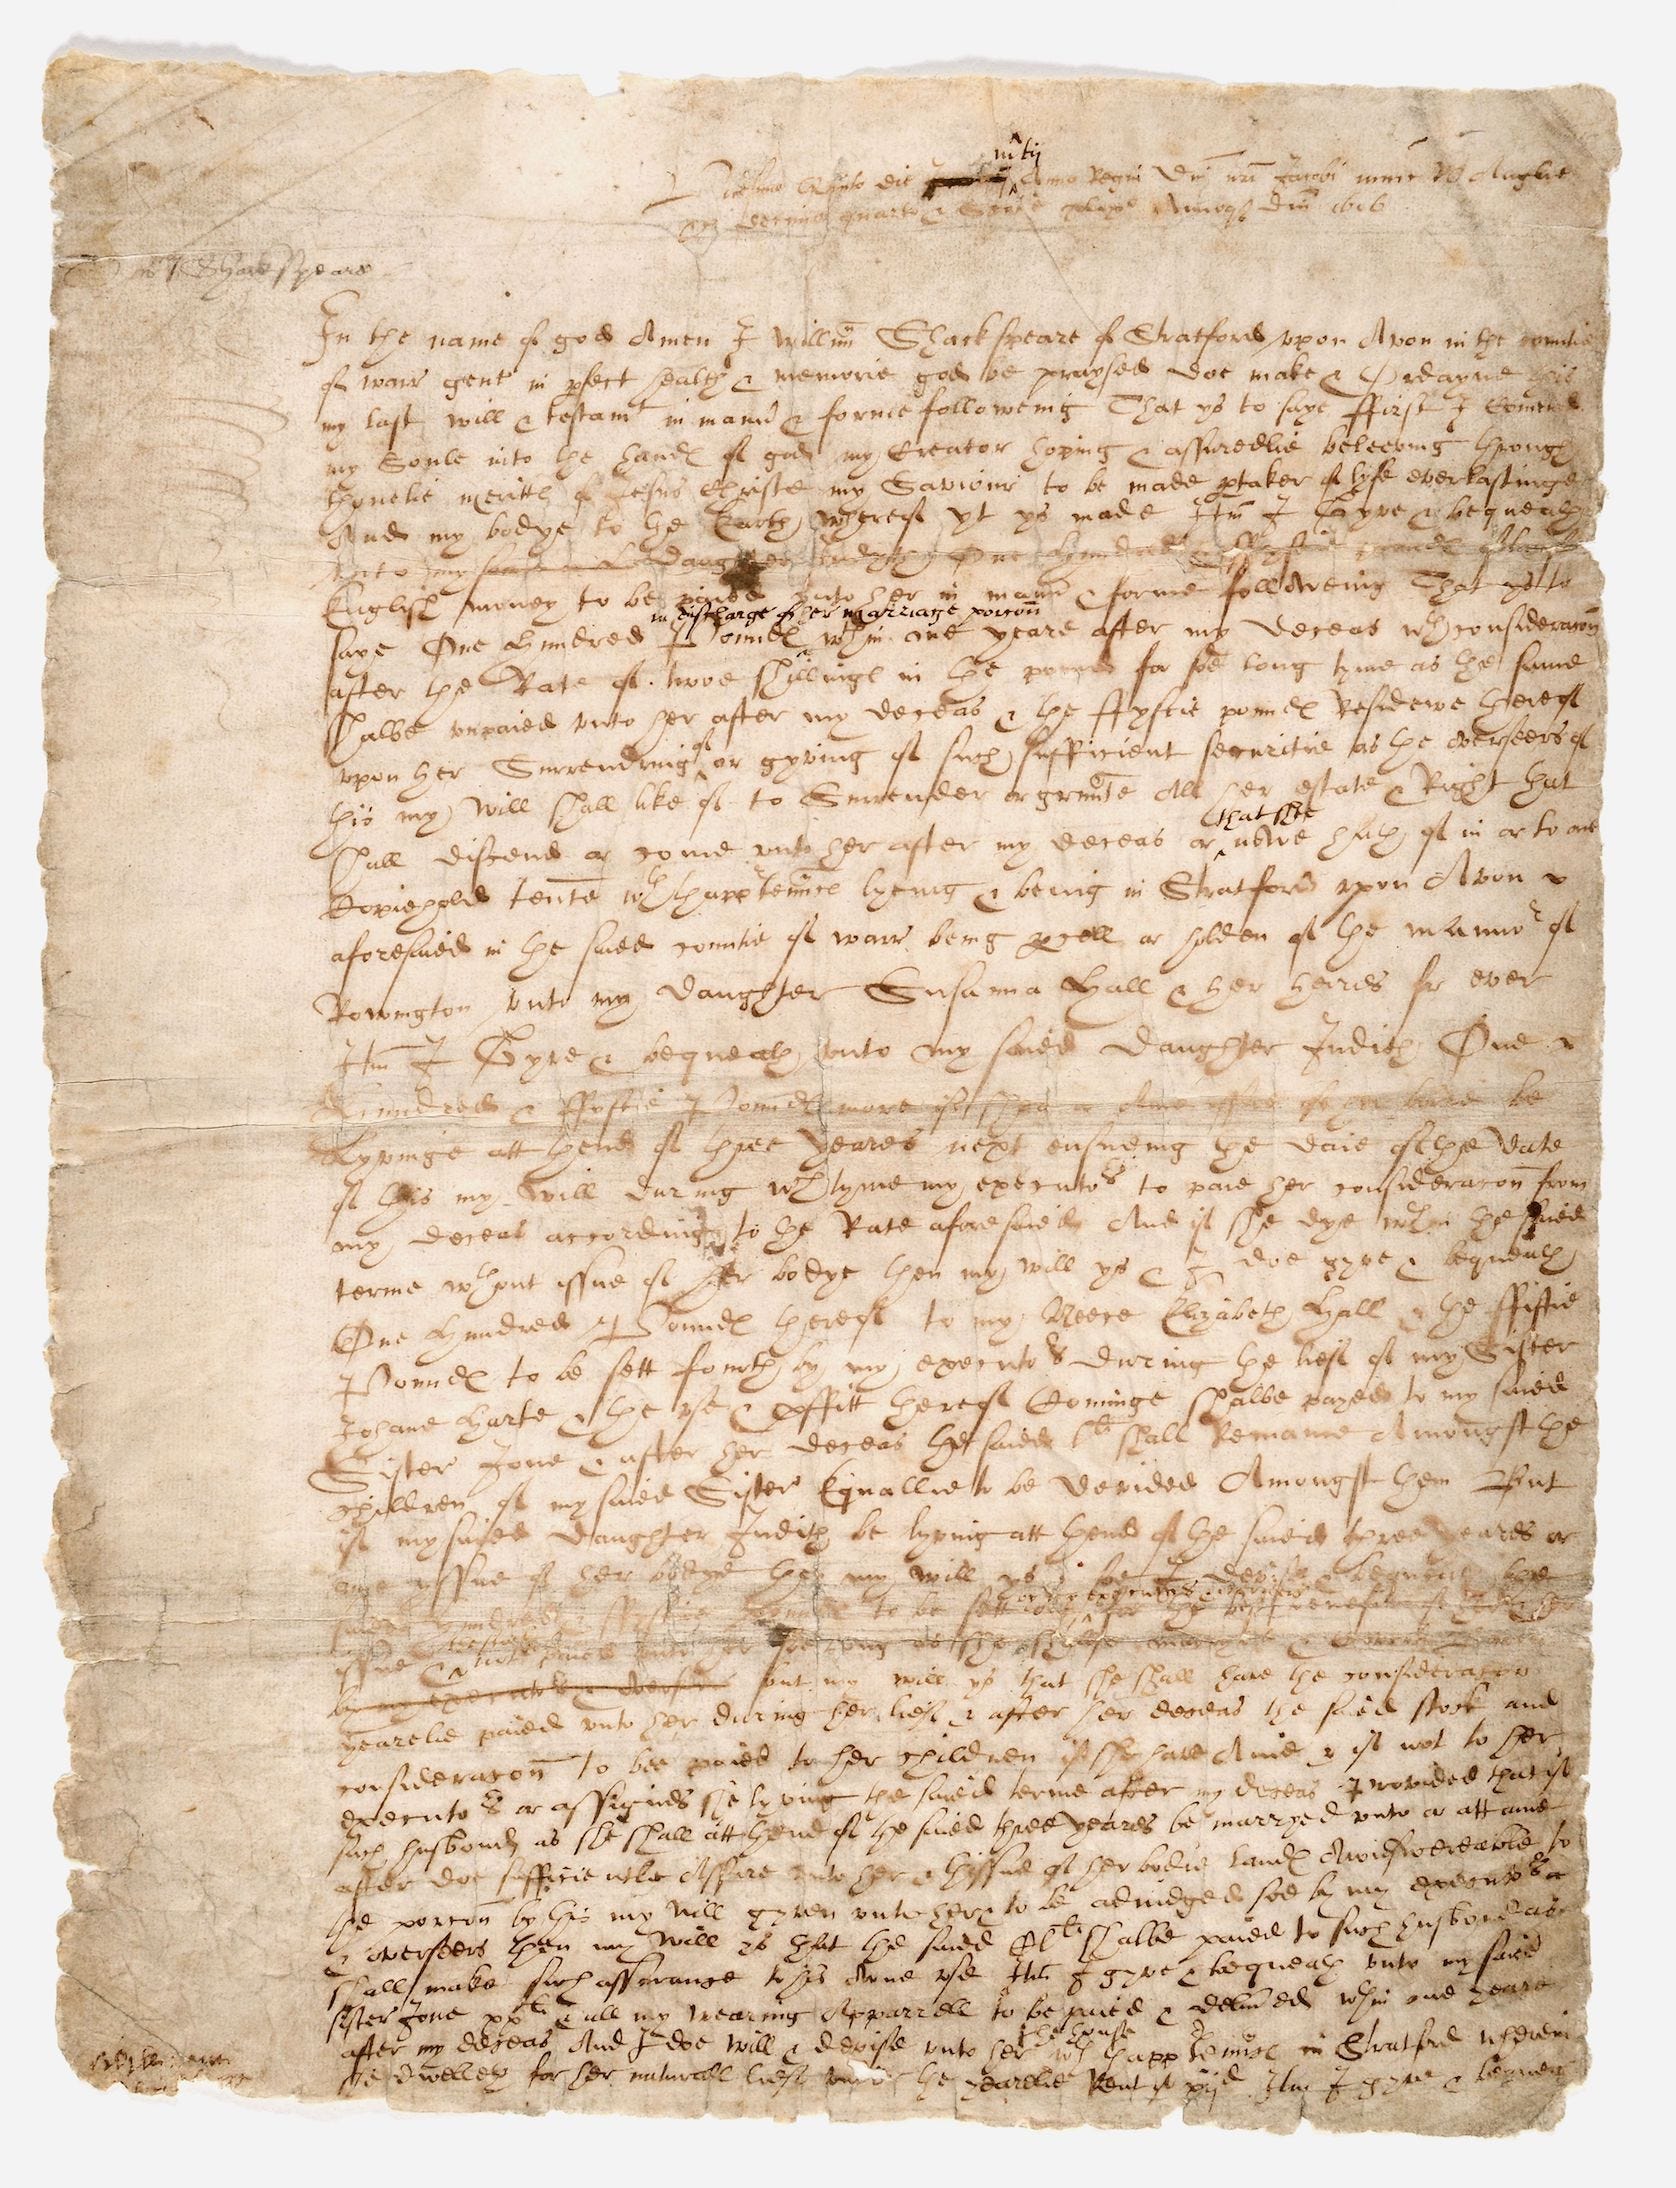 Vicesimo Quinto die Januarij mtij Anno Regni Dni nri Jacobi nunc R Anglie
&c decimo quarto & Scotie xlixo Annoqz dni 1616
T Wmj Shackspeare
In the name of god Amen I Willim Shackspeare of Stratford vpon Avon in the countie
of warr gent in pfect health & memorie god be praysed doe make & Ordayne this
my last will & testamt in mannr & forme followeing That ys to saye ffirst I Comend
my Soule into the handes of god my Creator hoping & assuredlie beleeving through
thonelie merittes of Jesus Christe my Saviour to be made ptaker of lyfe everlastinge
And my bodye to the Earth whereof yt ys made Itm I Gyve & bequeath
vnto my Daughter Judyth One Hundred & ffyftie poundes of lawfull
English money to be paied vnto her in mannr & forme followeing That ys to
in discharge of her marriage porcon
saye One Hundred Poundes wthin one yeare after my deceas wth consideracon
after the Rate of twoe shillinges in the pound for soe long tyme as the same
shalbe vnpaied vnto her after my deceas & the ffyftie poundes Residewe thereof
vpon her Surrendring of or gyving of such sufficient securitie as the overseers of
this my will shall like of to Surrender or graunte All her estate & Right that
that shee
shall discend or come vnto her after my deceas or nowe hath of in or to one
Copiehold tente wth thapptenances lyeing & being in Stratford vpon Avon
aforesaied in the saied countie of warr being pcell or holden of the mannor of
Rowington vnto my daughter Susanna Hall & her heires for ever
Itm I Gyve & bequeath vnto my saied Daughter Judith One
Hundred & ffyftie Poundes more if shee or Anie issue of her bodie be
Lyvinge att thend of three yeares next ensueing the daie of the date
of this my will during wch tyme my executors to paie her consideracon from
my deceas according to the Rate aforesaied And if she dye wthin the saied
terme wthout issue of her bodye then my will ys & I doe gyve & bequeath
One Hundred Poundes thereof to my Neece Elizabeth Hall & the ffiftie
Poundes to be sett fourth by my executors during the lief of my Sister
Johane Harte & the vse & pffitt thereof Cominge shalbe payed to my saied
Sister Jone & after her deceas the saied lli shall Remaine Amongst the
children of my saied Sister Equallie to be devided Amongst them But
if my saied daughter Judith be lyving att thend of the saied three yeares or
anie yssue of her bodye then my will ys & soe I devise & bequeath the
by my executors & overseers
saied Hundred & ffyftie Poundes to be sett out for the best benefitt of her & her
the stock
issue & not to be paied vnto her soe long as she shalbe marryed & covert Baron
by my executors & overseers but my will ys that she shall have the consideracon
yearelie paied vnto her during her lief & after her deceas the saied stock and
consideracon to bee paied to her children if she have Anie & if not to her
executors or assignes she lyving the saied terme after my deceas Provided that if
such husbond as she shall att thend of the saied three yeares be marryed vnto or att anie
after doe sufficientlie Assure vnto her & thissue of her bodie landes Awnswereable to
the porcon by this my will gyven vnto her & to be adiudged soe by my executors
& overseers then my will ys that the saied Clli shalbe paied to such husbond as
shall make such assurance to his owne vse Itm I gyve & bequeath vnto my saied
sister Jone xxli & all my wearing Apparrell to be paied & delivered wthin one yeare
the house
after my deceas And I doe will & devise vnto her wth thapptenances in Stratford wherein
she dwelleth for her naturall lief vnder the yearelie Rent of xijd Itm I gyve & bequeath